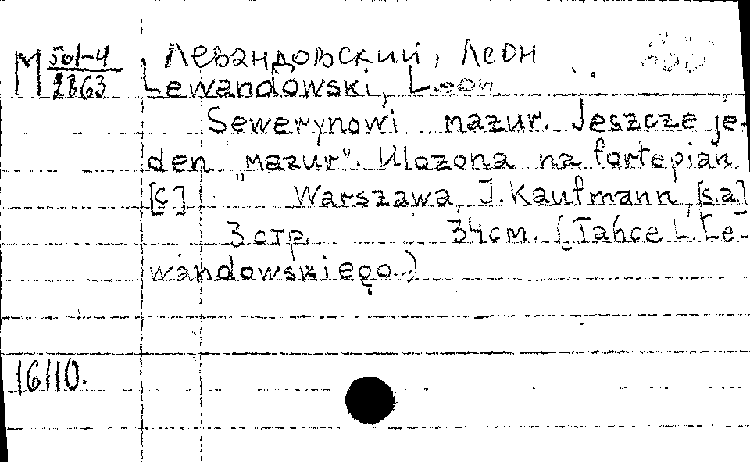 М 501-4 Левандовский, Леон
2863 Lewandowski, Leon
Sewerynowi mazur. Jeszcze je-
den "mazur". Ulozona na fortepian
[c] Warszawa, J. Kaufmann, [s.a]
3 стр. 34 см. (Tańce L. Le-
wandowskiego.)
16110.